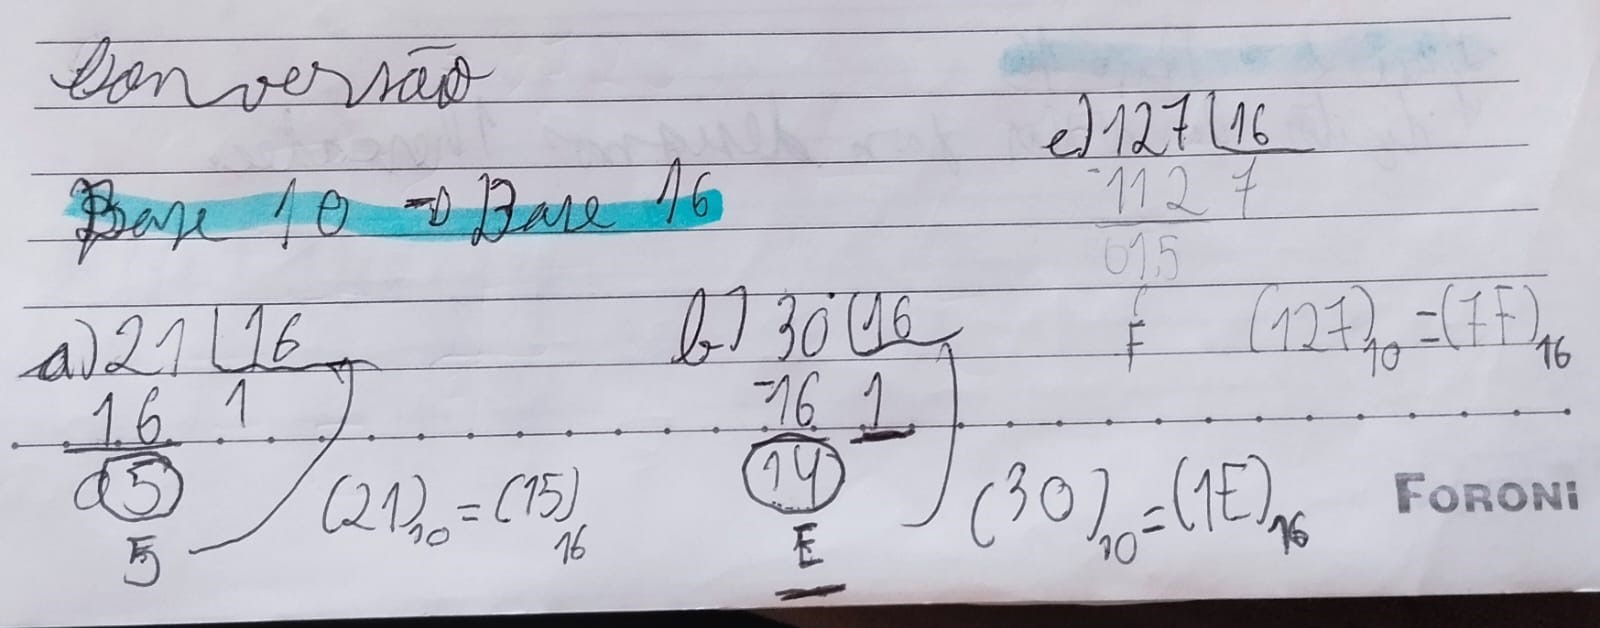 Conversão
Base 10 → Base 16
a) 21 | 16
16 1
05
5
(21)10 = (15)16
b) 30 | 16
-16 1
14
E
(30)10 = (1E)16
c) 127 | 16
-112 7
015
F (127)10 = (7F)16
FORONI